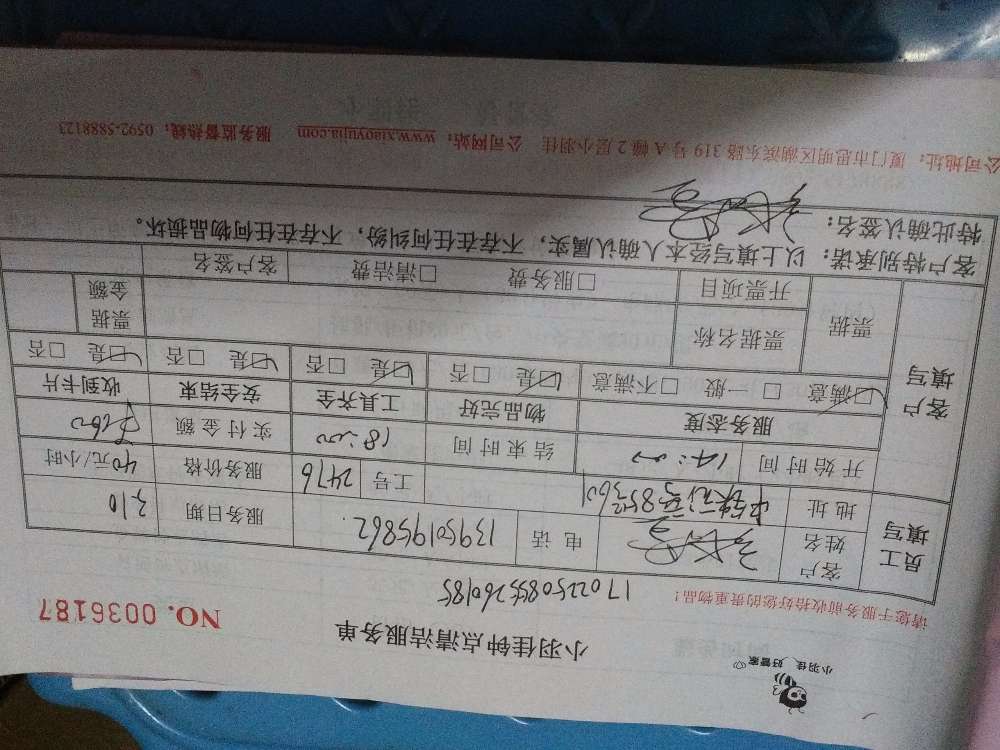 小羽佳 好管家
小羽佳钟点清洁服务单
NO. 0036187
请您于服务前收拾好您的贵重物品！
员工填写
客户姓名
电话 13950195862
服务日期 3.10
地址
工号 2476
服务价格 40元/小时
客户填写
开始时间 14:00
结束时间 18:00
实付金额
服务态度 物品完好 工具齐全 安全结束 收到卡片
☑满意 □一般 □不满意 ☑是 □否 ☑是 □否 ☑是 □否 ☑是 □否
票据 票据名称 票据金额
开票项目 □服务费 □清洁费 客户签名
客户特别承诺：以上填写经本人确认属实，不存在任何纠纷，不存在任何物品损坏。
特此确认签名：
公司地址：厦门市思明区湖滨东路 319 号 A 幢 2 层小羽佳 公司网站：www.xiaoyujia.com 服务监督热线：0592-5888123